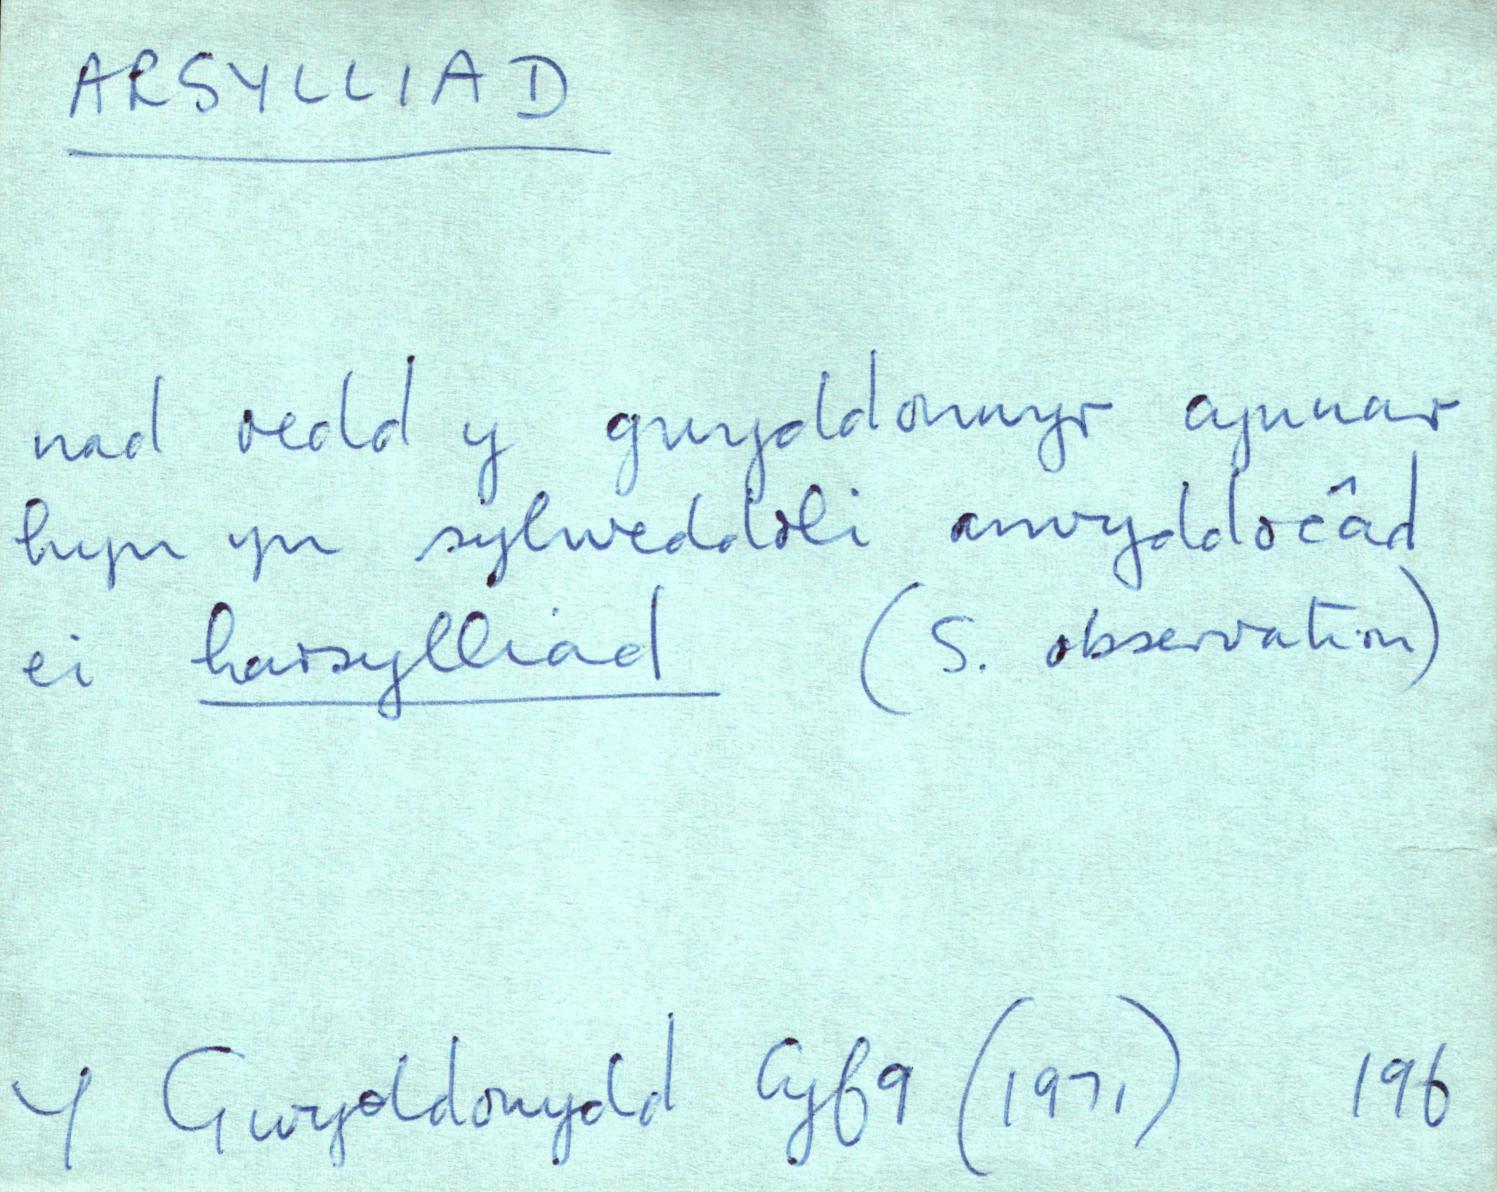 ARSYLLIAD
nad oedd y gwyddonwyr cynnar
hyn yn sylweddoli arwyddocâd
ei harsylliad (S. observation)
Y Gwyddonydd Cyf 9 (1971) 196